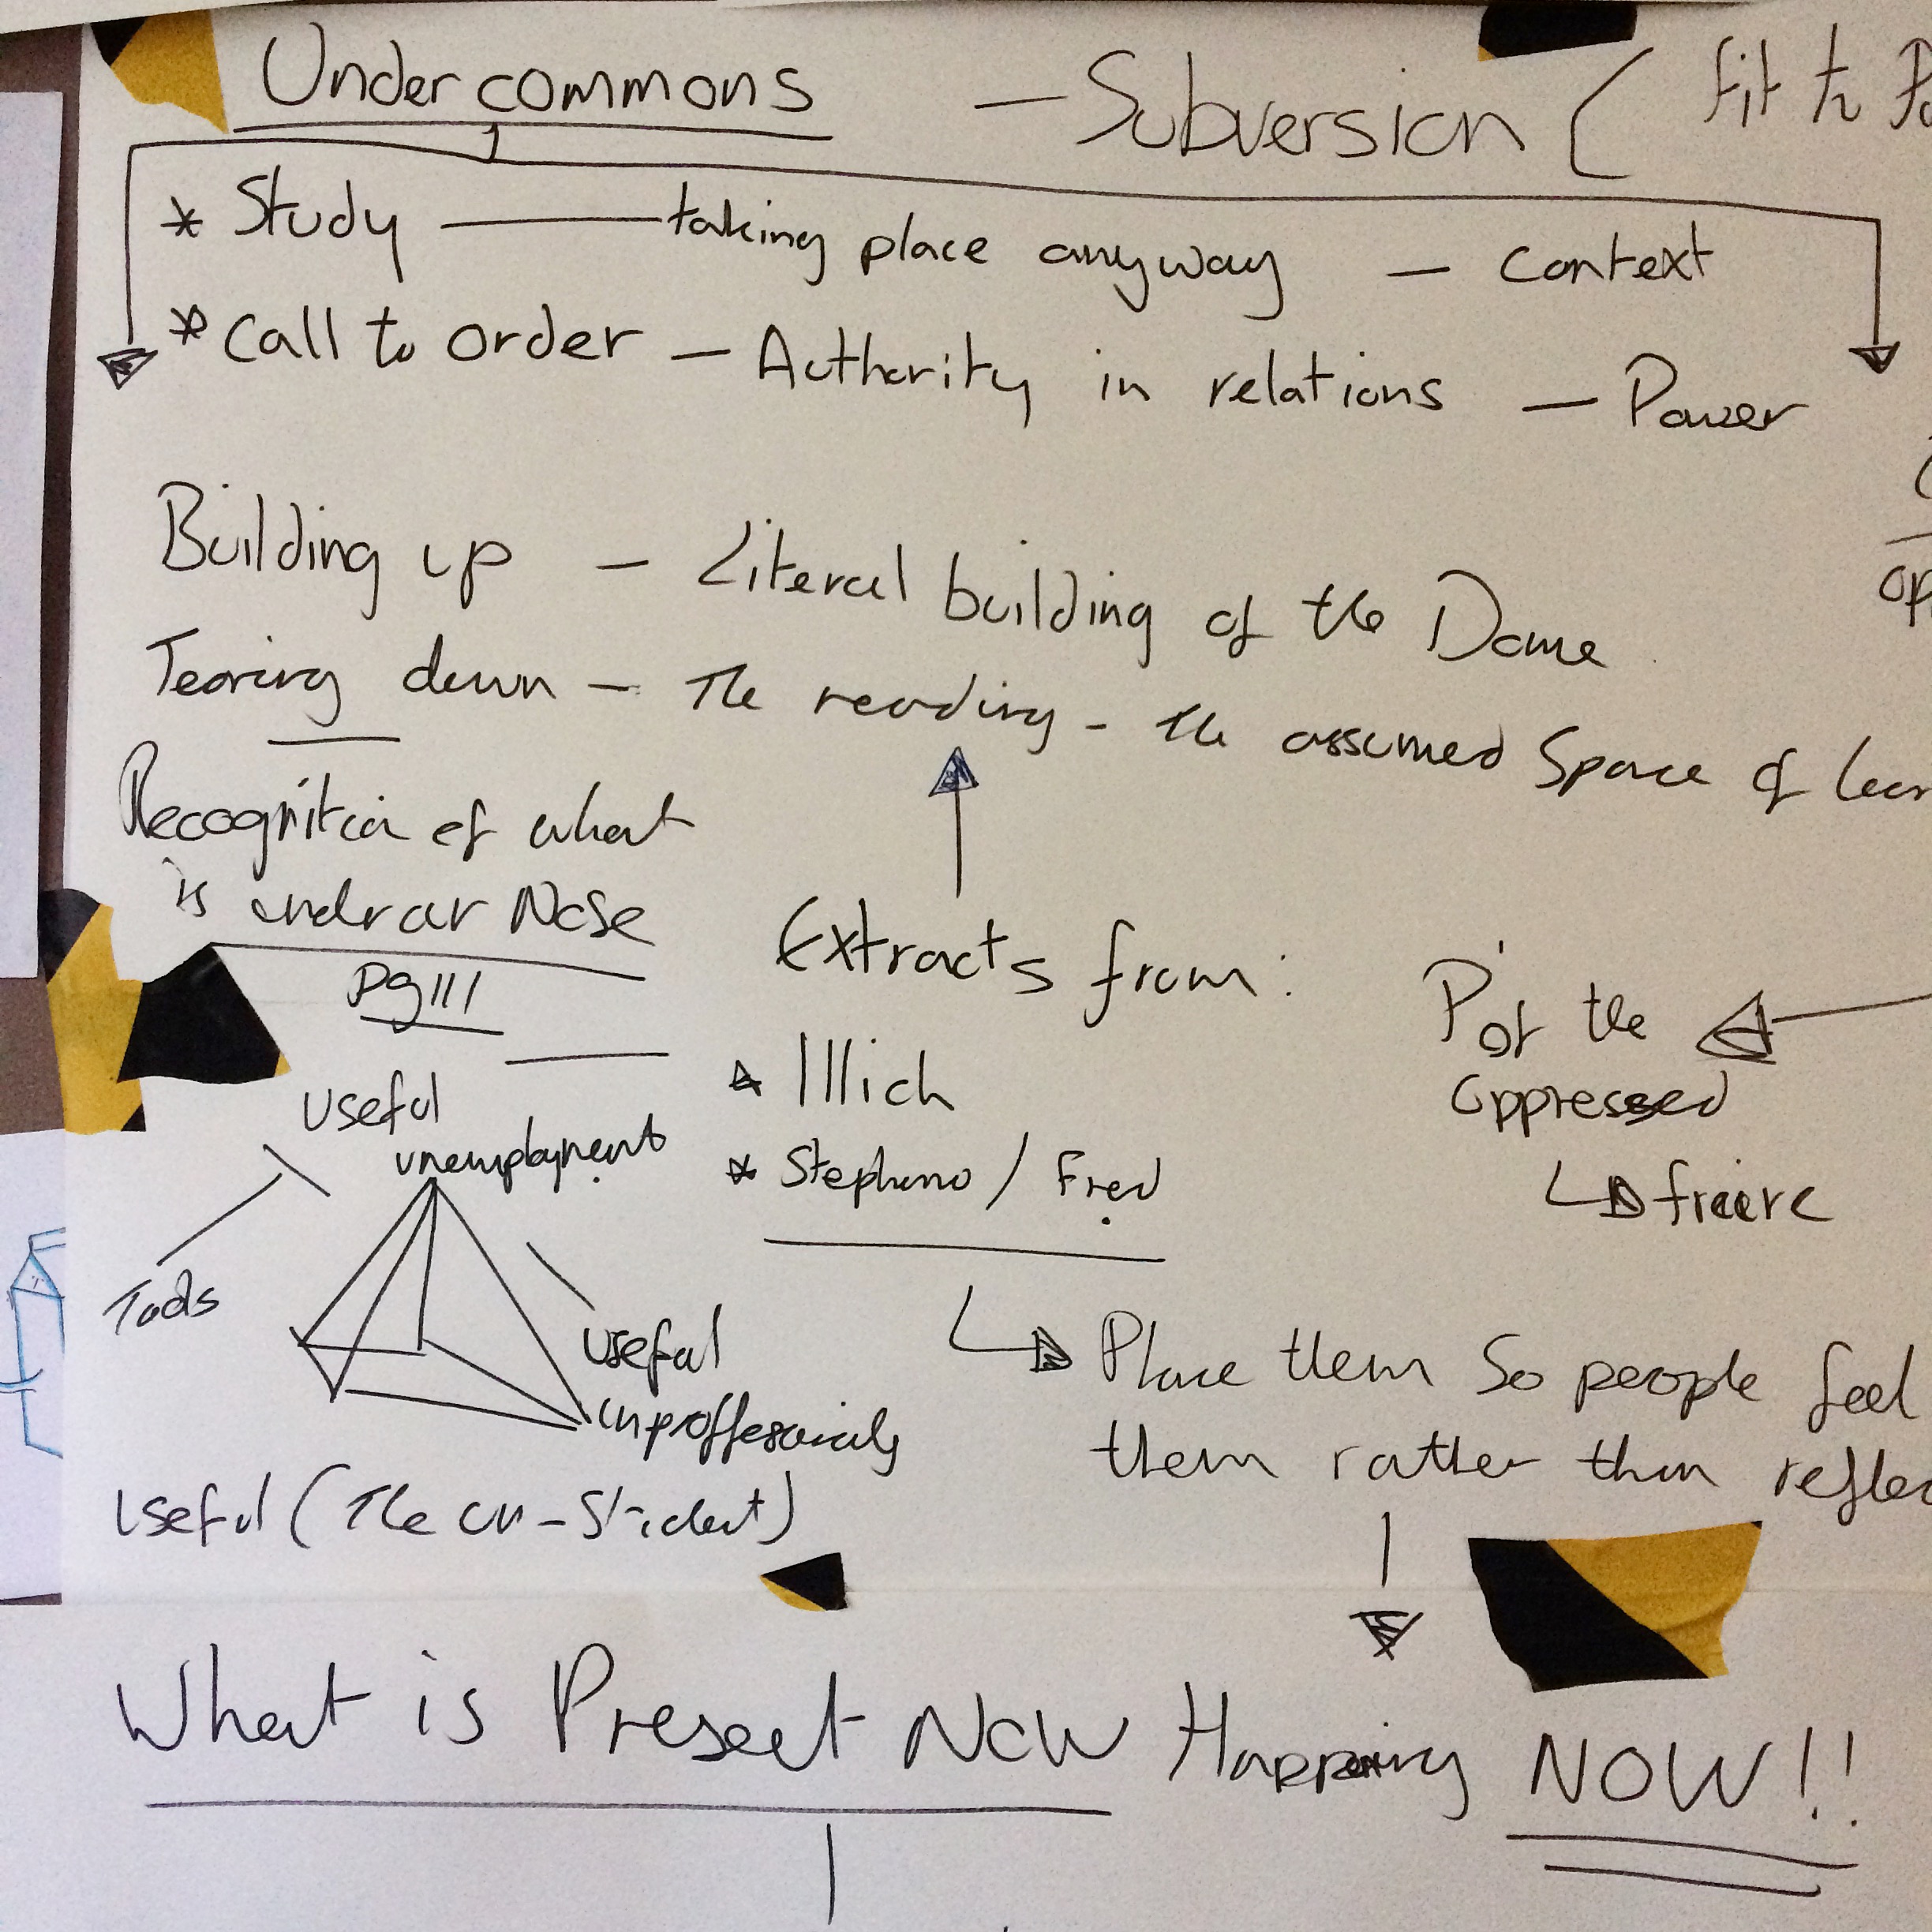 Undercommons — Subversion ( fit to
* Study — taking place anyway — Context
* Call to order — Authority in relations — Power
Building up — Literal building of the Dome
Tearing down — The reading - The assumed Space of
Recognition of what
is under our Nose
pg 111
Extracts from:
* Illich
* Stephano / Fred
P. of the
Oppressed
freire
Useful
unemployment
Tools
Useful
unproffesionals
Useful (The un-Student)
Place them so people feel
them rather than
What is Present Now Happening NOW!!